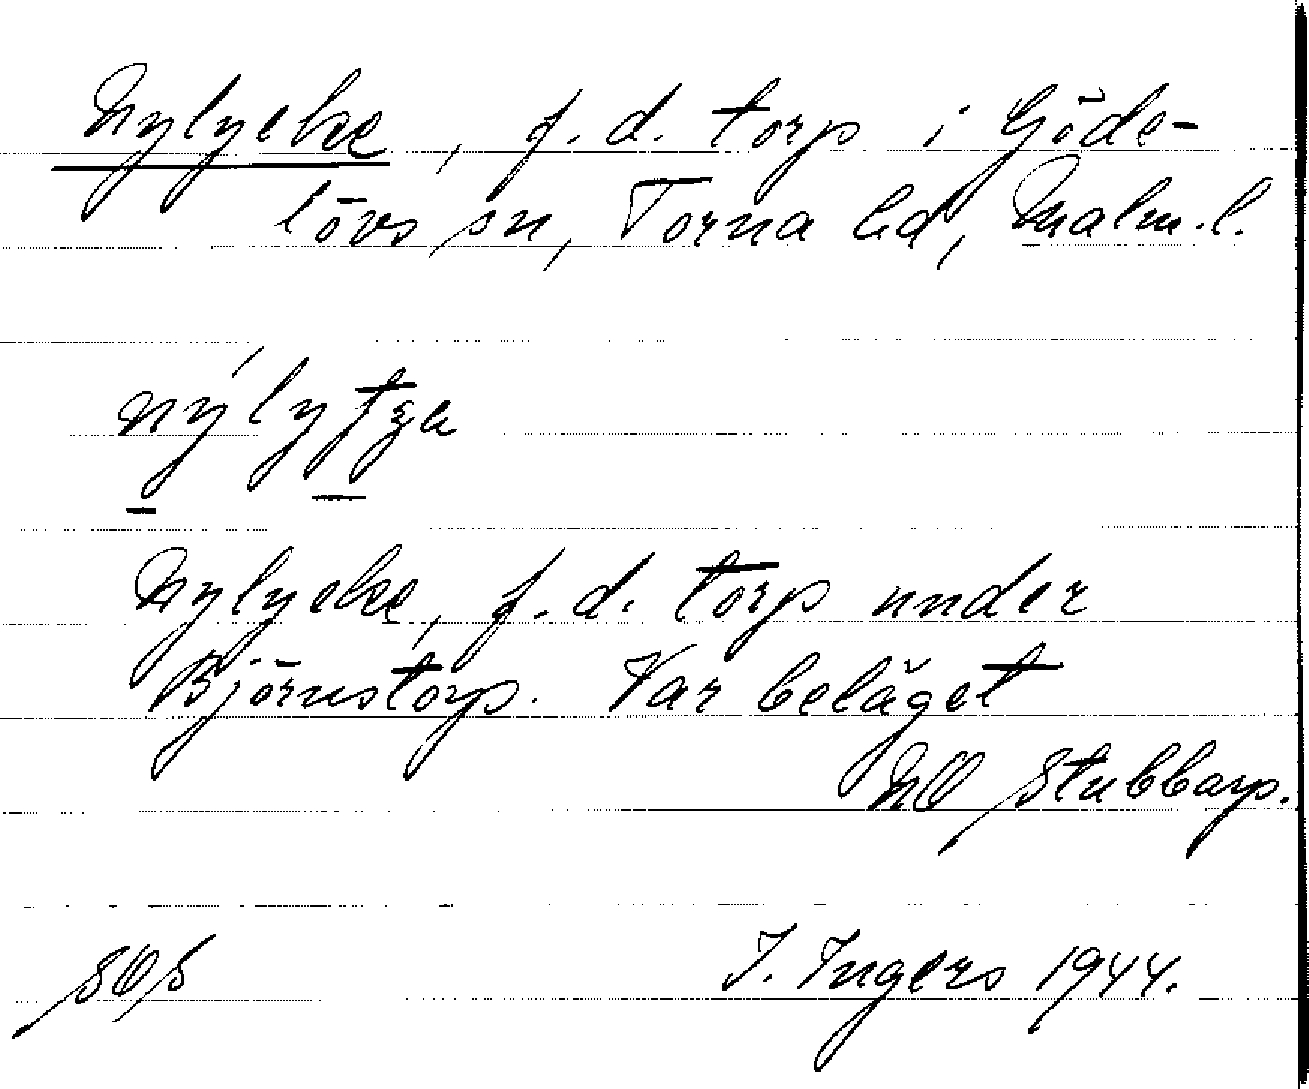 Nylycke, f. d. torp i Göde-
lövs sn, Torna hd, Malm. l.
Nylycke, f. d. torp under
Björnstorp. Var beläget
NO Stubbarp.
I. Ingers 1944.